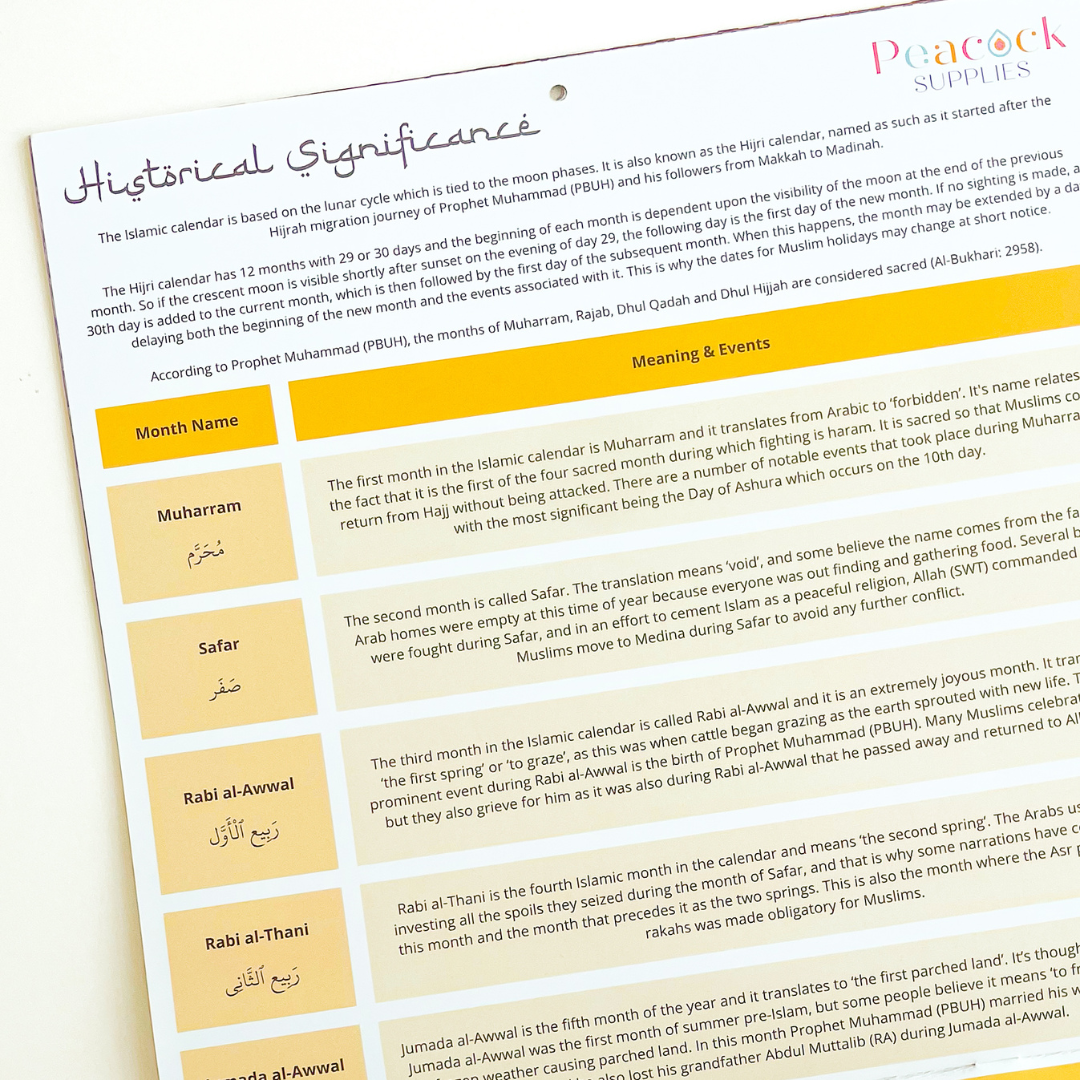 Peacock
SUPPLIES
Historical Significance
The Islamic calendar is based on the lunar cycle which is tied to the moon phases. It is also known as the Hijri calendar, named as such as it started after the
Hijrah migration journey of Prophet Muhammad (PBUH) and his followers from Makkah to Madinah.
The Hijri calendar has 12 months with 29 or 30 days and the beginning of each month is dependent upon the visibility of the moon at the end of the previous
month. So if the crescent moon is visible shortly after sunset on the evening of day 29, the following day is the first day of the new month. If no sighting is made, a
30th day is added to the current month, which is then followed by the first day of the subsequent month. When this happens, the month may be extended by a da
delaying both the beginning of the new month and the events associated with it. This is why the dates for Muslim holidays may change at short notice.
According to Prophet Muhammad (PBUH), the months of Muharram, Rajab, Dhul Qadah and Dhul Hijjah are considered sacred (Al-Bukhari: 2958).
Month Name
Meaning & Events
Muharram
مُحَرَّم
The first month in the Islamic calendar is Muharram and it translates from Arabic to ‘forbidden’. It's name relates
the fact that it is the first of the four sacred month during which fighting is haram. It is sacred so that Muslims co
return from Hajj without being attacked. There are a number of notable events that took place during Muharra
with the most significant being the Day of Ashura which occurs on the 10th day.
Safar
صَفَر
The second month is called Safar. The translation means ‘void’, and some believe the name comes from the fa
Arab homes were empty at this time of year because everyone was out finding and gathering food. Several b
were fought during Safar, and in an effort to cement Islam as a peaceful religion, Allah (SWT) commanded
Muslims move to Medina during Safar to avoid any further conflict.
Rabi al-Awwal
رَبِيع ٱلْأَوَّل
The third month in the Islamic calendar is called Rabi al-Awwal and it is an extremely joyous month. It tran
‘the first spring’ or ‘to graze’, as this was when cattle began grazing as the earth sprouted with new life. T
prominent event during Rabi al-Awwal is the birth of Prophet Muhammad (PBUH). Many Muslims celebra
but they also grieve for him as it was also during Rabi al-Awwal that he passed away and returned to Al
Rabi al-Thani
رَبِيع ٱلثَّانِي
Rabi al-Thani is the fourth Islamic month in the calendar and means ‘the second spring’. The Arabs us
investing all the spoils they seized during the month of Safar, and that is why some narrations have c
this month and the month that precedes it as the two springs. This is also the month where the Asr p
rakahs was made obligatory for Muslims.
al-Awwal
Jumada al-Awwal is the fifth month of the year and it translates to ‘the first parched land’. It’s though
Jumada al-Awwal was the first month of summer pre-Islam, but some people believe it means ‘to fr
weather causing parched land. In this month Prophet Muhammad (PBUH) married his w
also lost his grandfather Abdul Muttalib (RA) during Jumada al-Awwal.